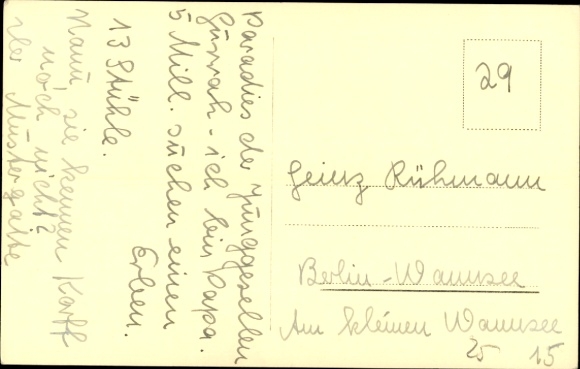 Paradies der Junggesellen
Hurrah - ich bin Papa.
5 Mill. suchen einen
Erben.
13 Stühle.
Nanu, sie kennen Korff
noch nicht?
Der Mustergatte
29
Heinz Rühmann
Berlin-Wannsee
Am kleinen Wannsee
25 15